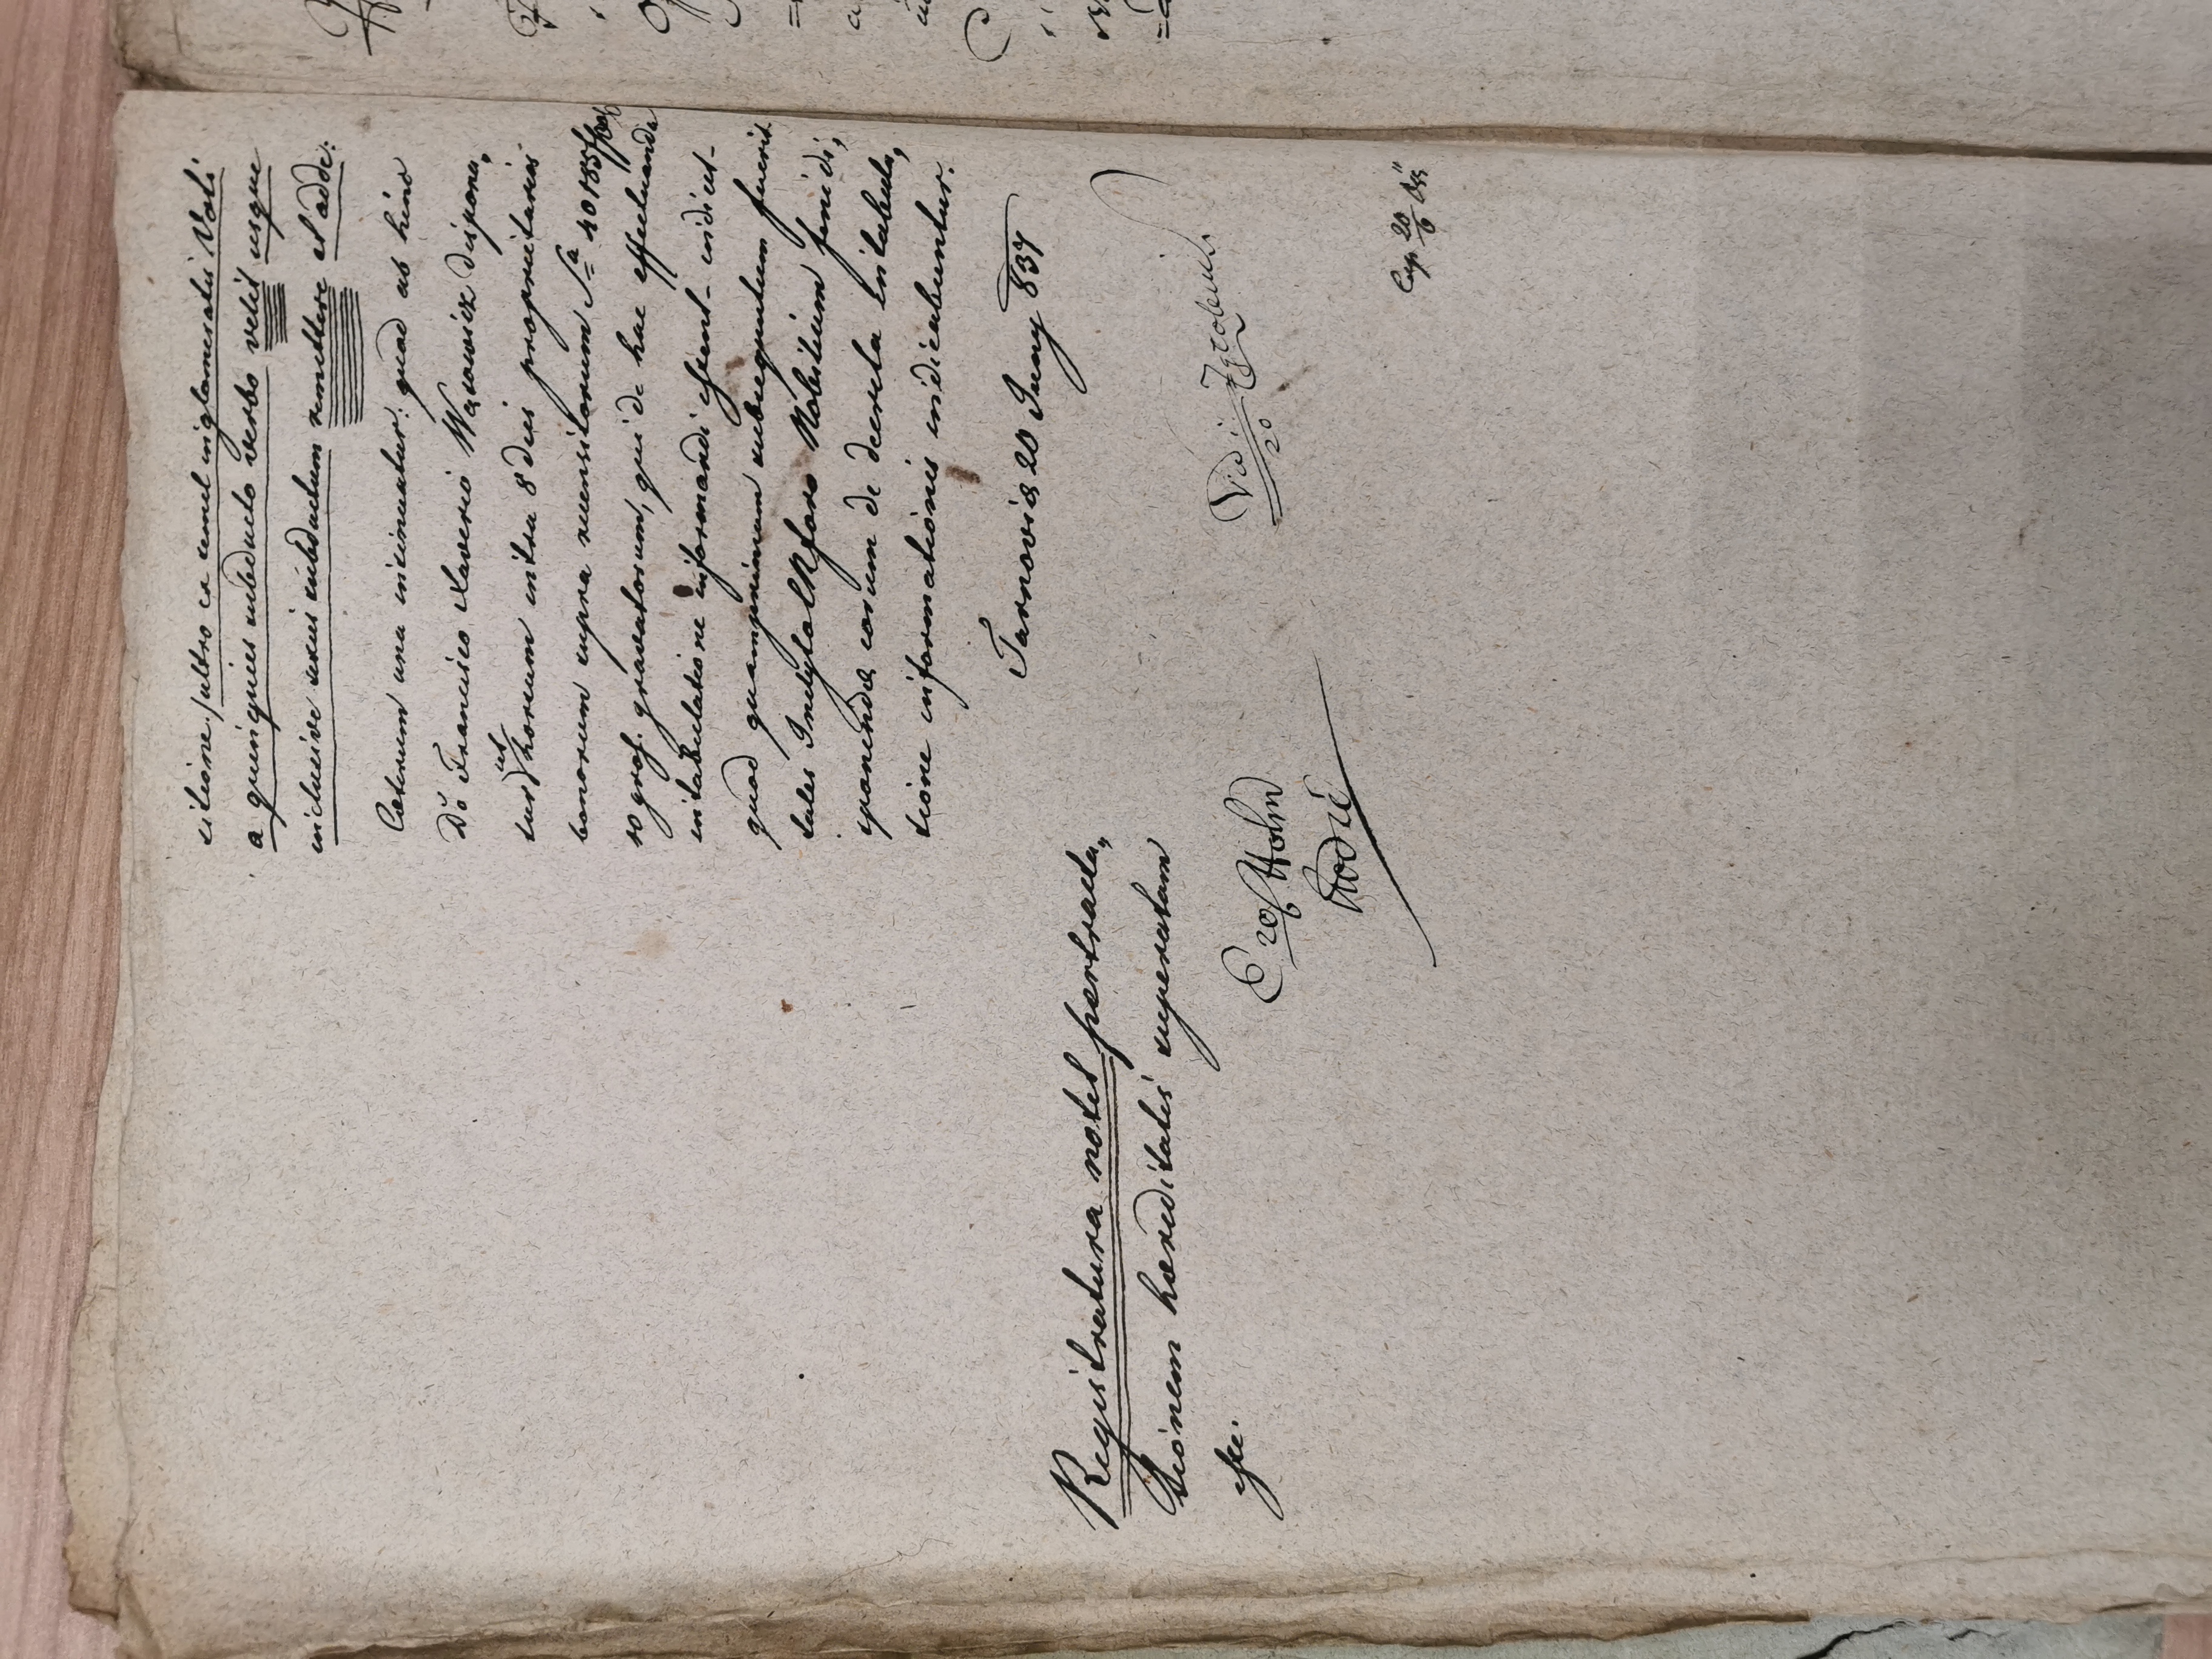 citione /:ultro ex emol inglomeratis Voti
a quinquies subducto verbo velit usque
inclusive suius subductum remittere et adde:
Coeterum una intimatur: quod ab hinc
Do Francisco Xaverio Wąsowicz dispona„
tur, ut horsum intra 8 dies proprietarios
bonorum supra recensitorum Sa 40185 fr
10 gros. gravatorum, qui de hac effectuanda
intabulatione informandi essent - indicet -
quod quamprimum subsequutum fuerit
tales Inclyto CR foro Nobilium fine di„
sponendae eorum de decreta intabula„
tione informationis indicabuntur.
Tarnoviae 20 Juny 837
Registratura notet pertracta„
tionem haereditatis superatam
esse.
Vidi
20
Exp 20/6